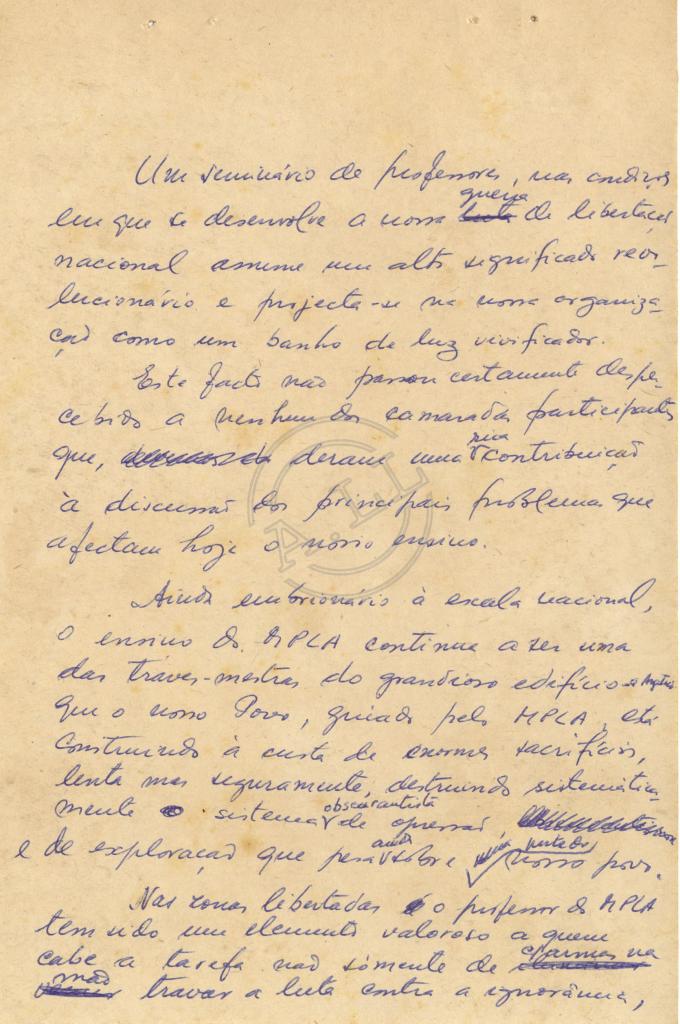 Um seminário de professores, nas condições
em que se desenvolve a nossa guerra de libertação
nacional assume um alto significado revo-
lucionário e projecta-se na nossa organiza-
ção como um banho de luz vivificador.
Este facto não passou certamente despe-
cebido a nenhum dos camaradas participantes
que, deram uma sua contribuição
à discussão dos principais problemas que
afectam hoje o nosso ensino.
Ainda embrionário à escala nacional,
o ensino do MPLA continua a ser uma
das traves-mestras do grandioso edifício
que o nosso Povo, guiado pelo MPLA, está
construindo à custa de enormes sacrifícios,
lenta mas seguramente, destruindo sistemàtica-
mente o sistema obscurantista de opressão,
e de exploração que pesa ainda sobre parte do nosso povo.
Nas zonas libertadas o professor do MPLA
tem sido um elemento valoroso a quem
cabe a tarefa não sòmente de d'armas na
mão travar a luta contra a ignorância,
A.L.